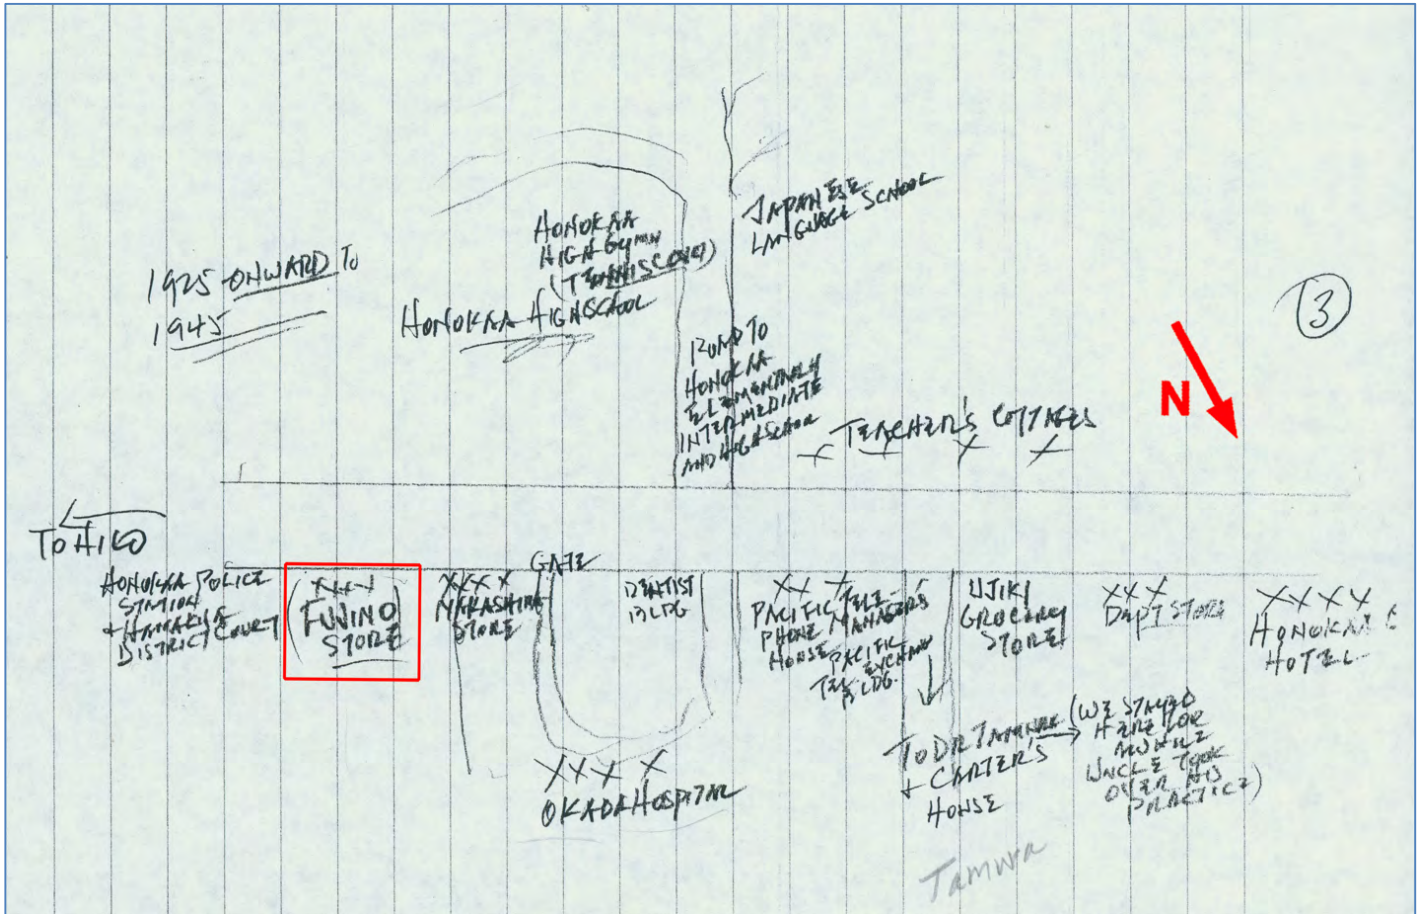 JAPANESE
LANGUAGE SCHOOL
HONOKAA
HIGH GYMN
(TENNIS COURT)
1925 ONWARD TO
1945
HONOKAA HIGHSCHOOL
3
ROAD TO
HONOKAA
ELEMENTARY
INTERMEDIATE
AND HIGHSCHOOL
N
TEACHER'S COTTAGES
TO HILO
GATE
HONOKAA POLICE
STATION
+ HAMAKUA
DISTRICT COURT
XXX
FUJINO
STORE
XXXX
NAKASHIMA
STORE
DENTIST
BLDG
XX X
PACIFIC TELE-
PHONE MANAGERS
HOUSE PACIFIC
TEL EXCHANG
BLDG.
UJIKI
GROCERY
STORE
XXX
DEPT STORE
XXXX
HONOKAA
HOTEL
XXX X
OKADA HOSPITAL
TO DR TAMURA
+ CARTER'S
HOUSE
(WE STAYED
HERE FOR
AWHILE
UNCLE TOOK
OVER HIS
PRACTICE)
Tamura